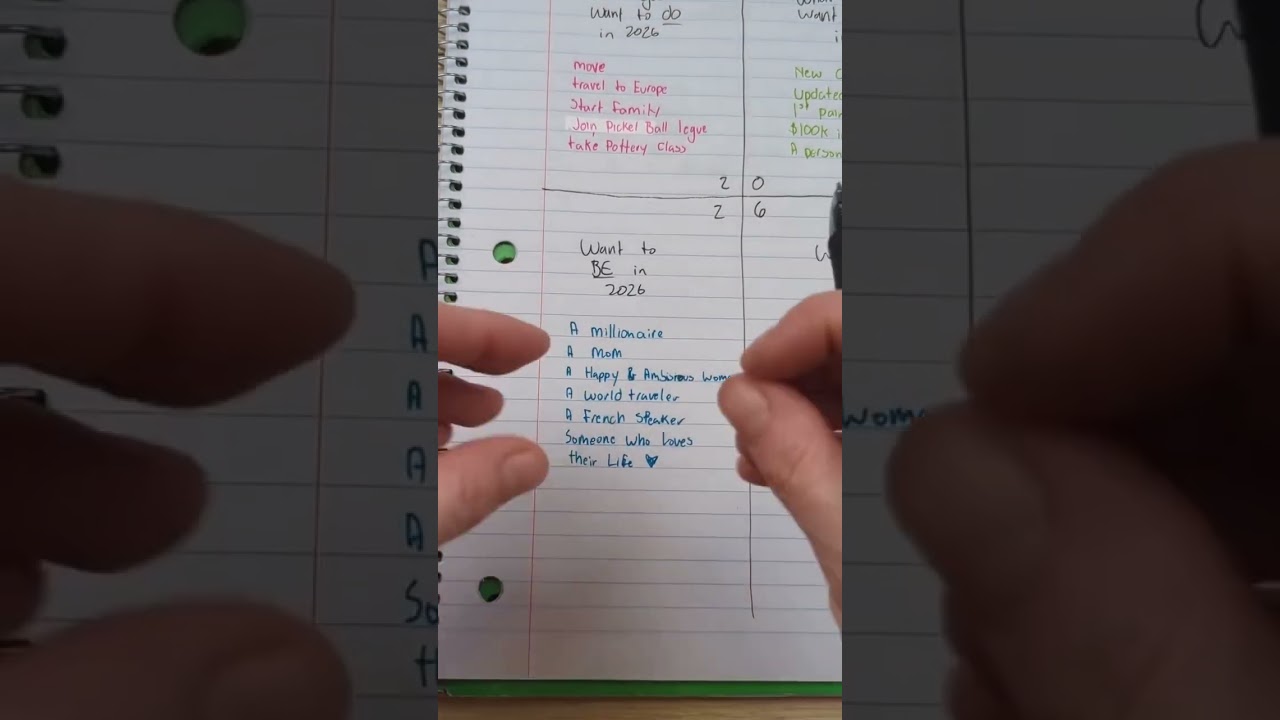 Want to do
in 2026
move
travel to Europe
Start Family
Join Pickel Ball legue
take Pottery Class
Want
New
Updated
1st
$100k
A person
2 0
2 6
Want to
BE in
2026
A millionaire
A mom
A Happy &
A world traveler
A French Speaker
Someone who Loves
their Life ♥